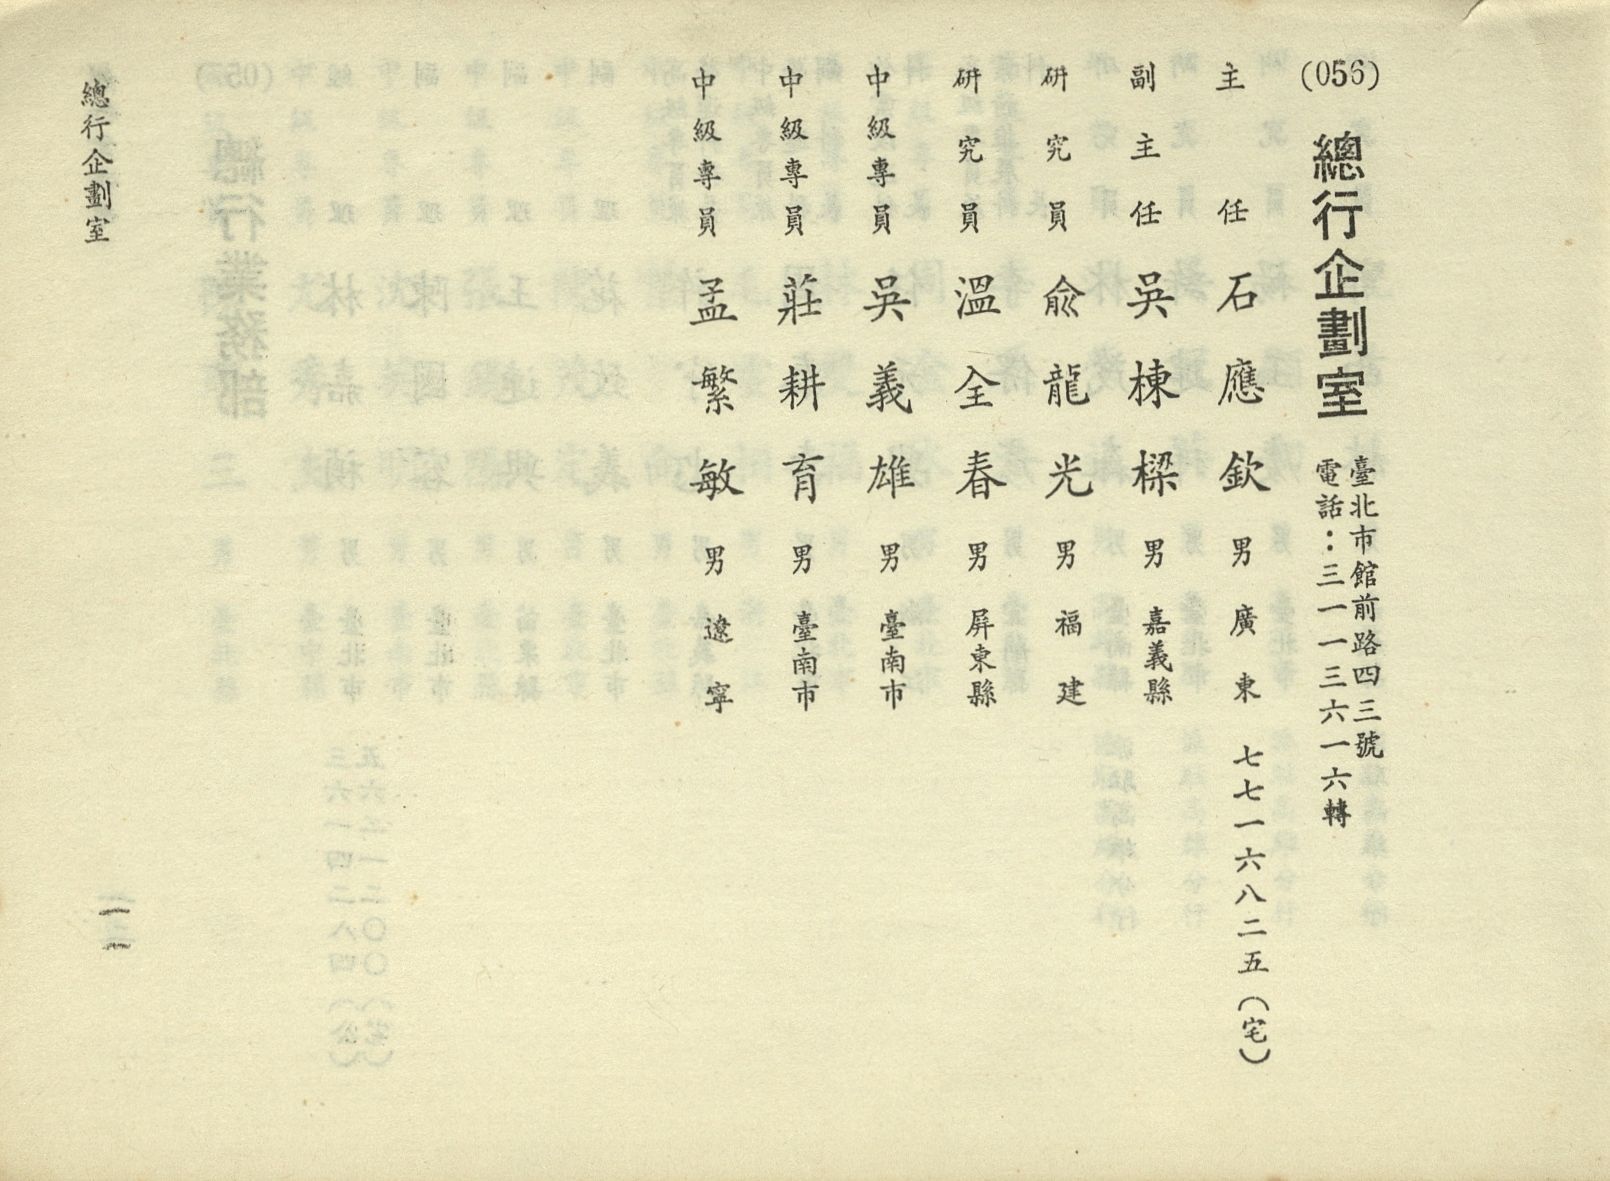 (056)
總行企劃室
臺北市館前路四三號
電話：三一一三六一六轉
主任 石應欽 男 廣東 七七一六八二五（宅）
副主任 吳棟樑 男 嘉義縣
研究員 俞龍光 男 福建
研究員 溫全春 男 屏東縣
中級專員 吳義雄 男 臺南市
中級專員 莊耕育 男 臺南市
中級專員 孟繁敏 男 遼寧
總行企劃室
一一